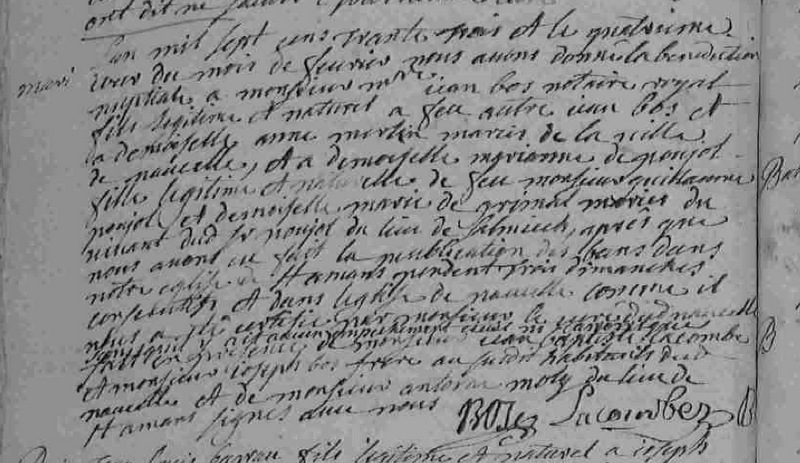 ont dit ne savoir
L'an mil sept cens trante trois et le quatrieme
mari
jour du mois de fevrier nous avons donné la benediction
nuptiale a monsieur mtre iean bos notaire royal
fils legitime et naturel a feu autre iean bos et
la demoiselle anne mertin mariés de la ville
de naucelle, et a demoiselle marianne de poujol
fille legitime et naturelle de feu monsieur guillaume
poujol et demoiselle marie de grimal mariés du
vivant dud sr poujol du lieu de salmiech, après que
nous avons eu fait la peublication des bans dans
notre eglise de st amans pendent trois dimanches
consecutifs et dans leglise de naucelle comme il
nous a été certifié par monsieur le curé dud naucelle
sans quil y ait aucun empechement civil ni canonique
fait en presence de monsieur iean baptiste lacombe
et monsieur ioseph bos frere au susdit habitants dud
naucelle et de monsieur antoine moly du lieu de
st amans signes avec nous BOS Lacombe
fils legitime et naturel a ioseph